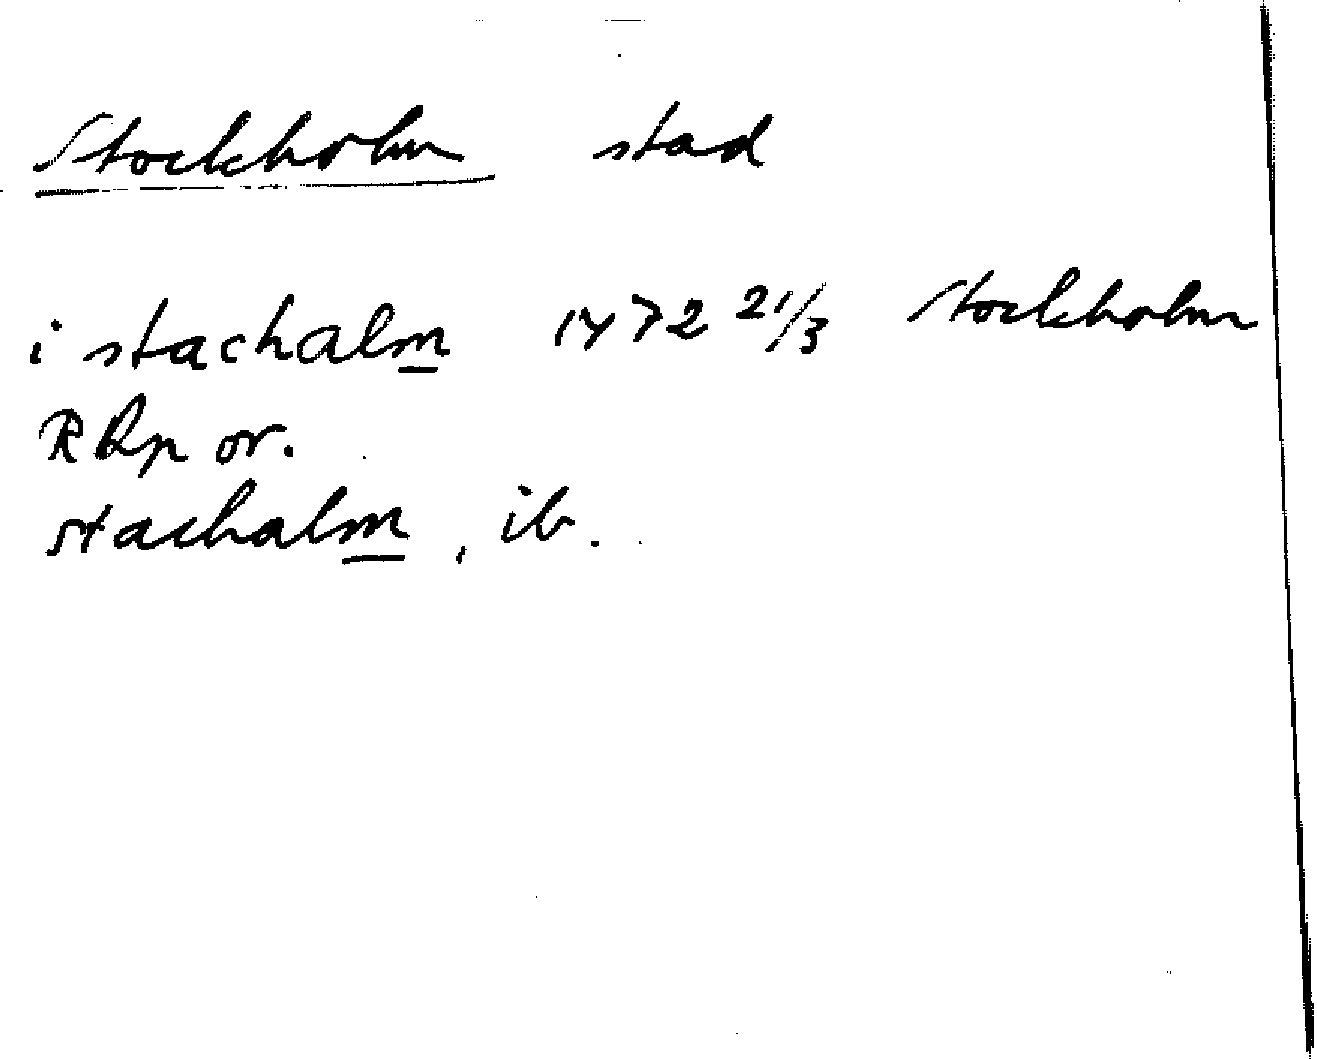 Stockholm stad
i stachalm 1472 21/3 Stockholm
RAp or.
stachalm, ib.